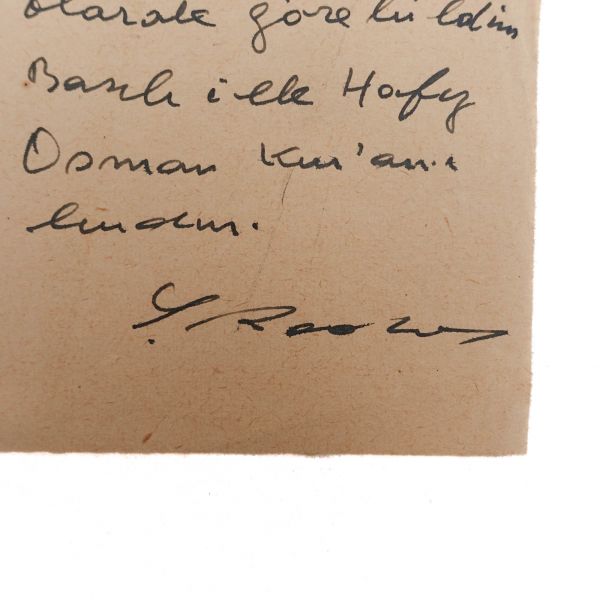 olarak görebildim
Basılı ilk Hafız
Osman Kur'anı
budur.